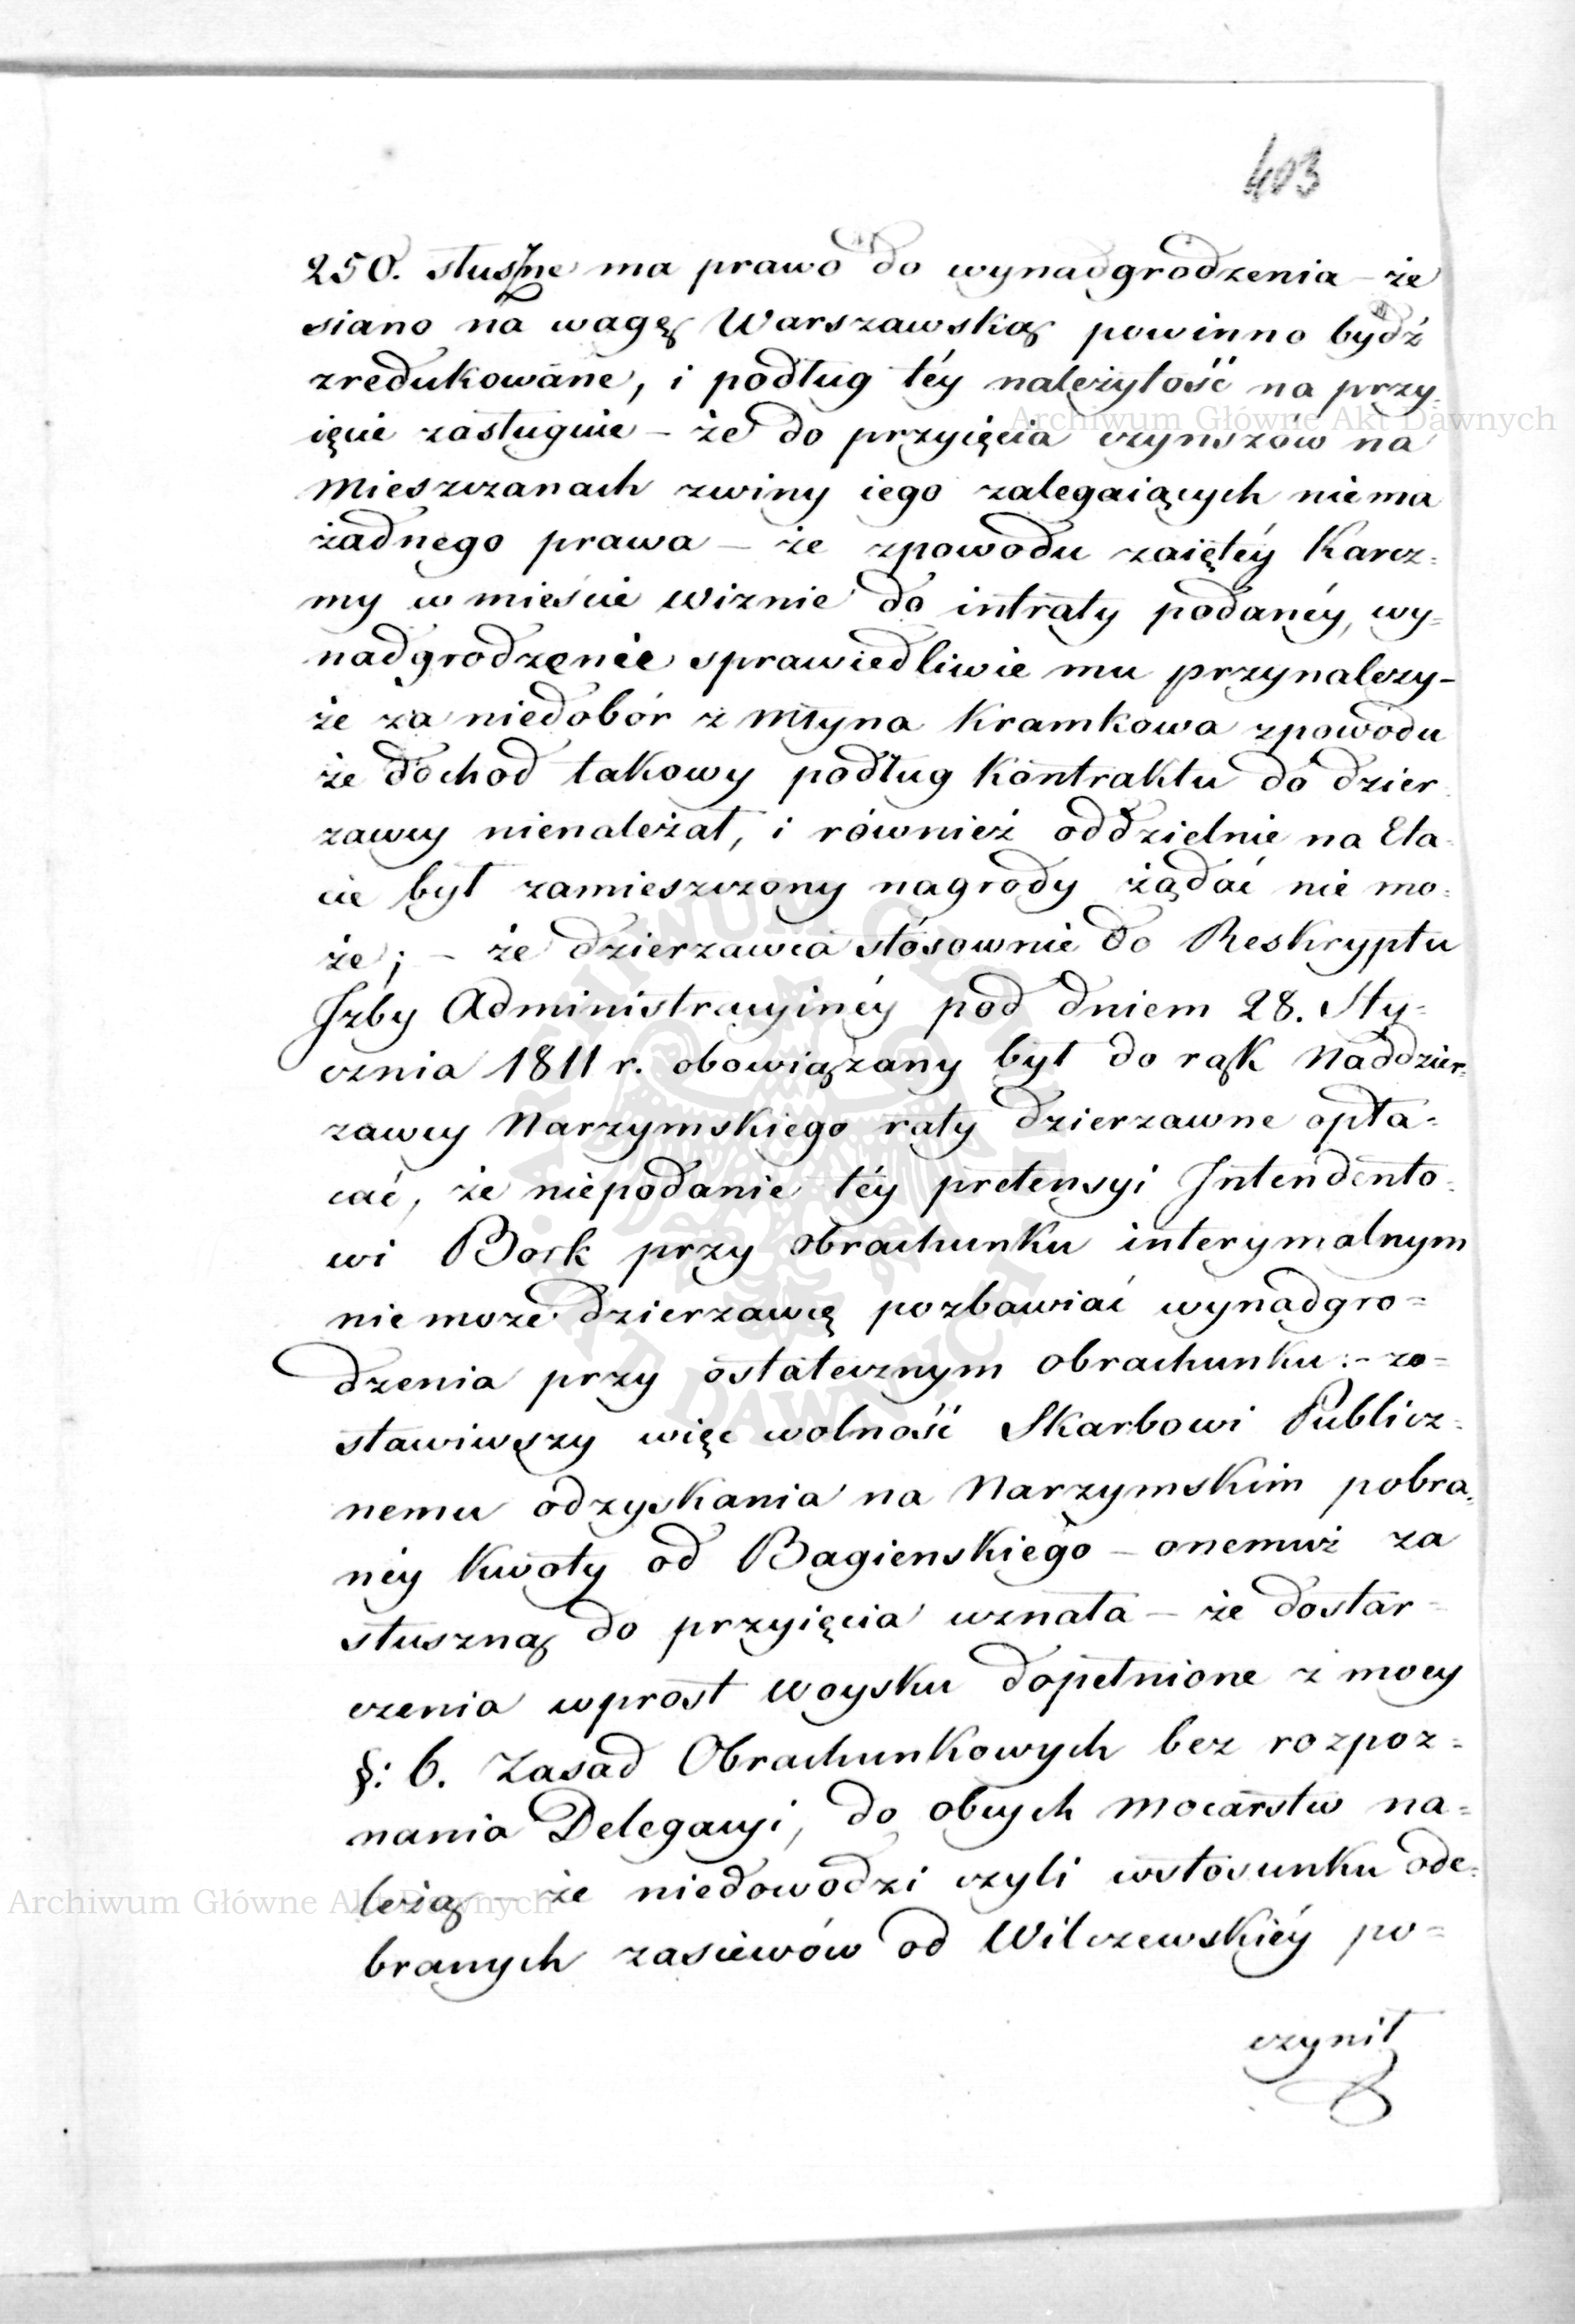 403
250. słuszne ma prawo do wynadgrodzenia – że
siano na wagę Warszawską powinno bydź
zredukowane, i podług téy należytość na przy-
ięcie zasługuie – że do przyięcia czynszów na
Mieszczanach zwiny iego zalegaiących niema
żadnego prawa – że zpowodu zaiętéy Karcz=
my w mieście Wiznie do intraty podanéy, wy=
nadgrodzenie sprawiedliwie mu przynalezy –
że za niedobór z Młyna Kramkowa zpowodu
że dochod takowy podług Kontraktu do dzier-
zawcy nienależał, i również oddzielnie na Eta-
cie był zamieszczony nagrody żądać nie mo=
że; – że dzierzawca stósownie do Reskryptu
Izby Administracyinéy pod dniem 28. Sty=
cznia 1811 r. obowiązany był do rąk Naddzier=
zawcy Narzymskiego raty dzierzawne opła=
cać, że niepodanie téy pretensyi Intendento=
wi Bock przy obrachunku interymalnym
niemoże dzierzawcę pozbawiać wynadgro=
dzenia przy ostatecznym obrachunku: – zo=
stawiwszy więc wolność Skarbowi Publicz=
nemu odzyskania na Narzymskim pobra=
néy Kwoty od Bagienskiego – onemuż za
słuszną do przyięcia uznała – że dostar=
czenia wprost Woysku dopełnione z mocy
§: 6. Zasad Obrachunkowych bez rozpoz=
nania Delegacyi, do obcych Mocarstw na=
leżą – że niedowodzi czyli wstosunku ode=
branych zasiewów od Wilczewskiéy po=
czynił
Archiwum Główne Akt Dawnych
Archiwum Główne Akt Dawnych
ARCHIWUM GŁÓWNE AKT DAWNYCH